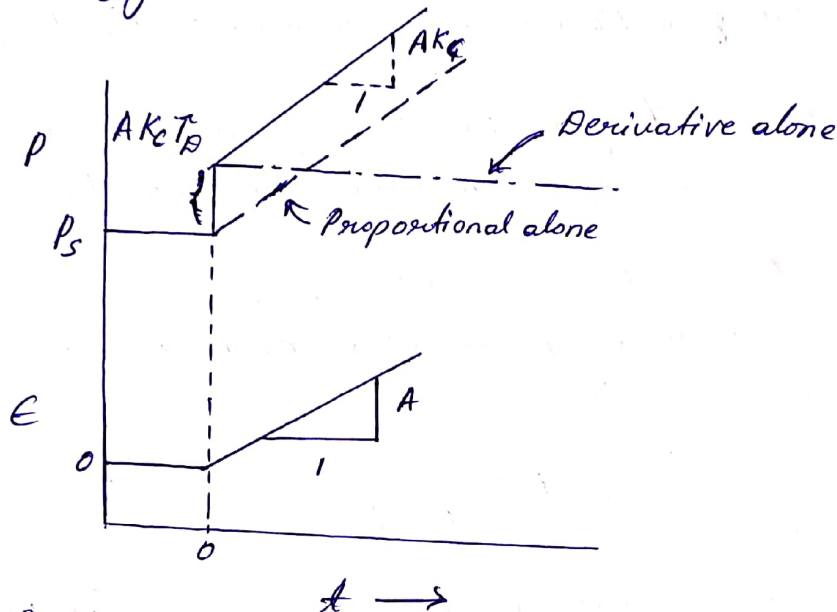 AKc
1
AKcτD
Derivative alone
P
Proportional alone
Ps
A
ϵ
1
0
0
t →